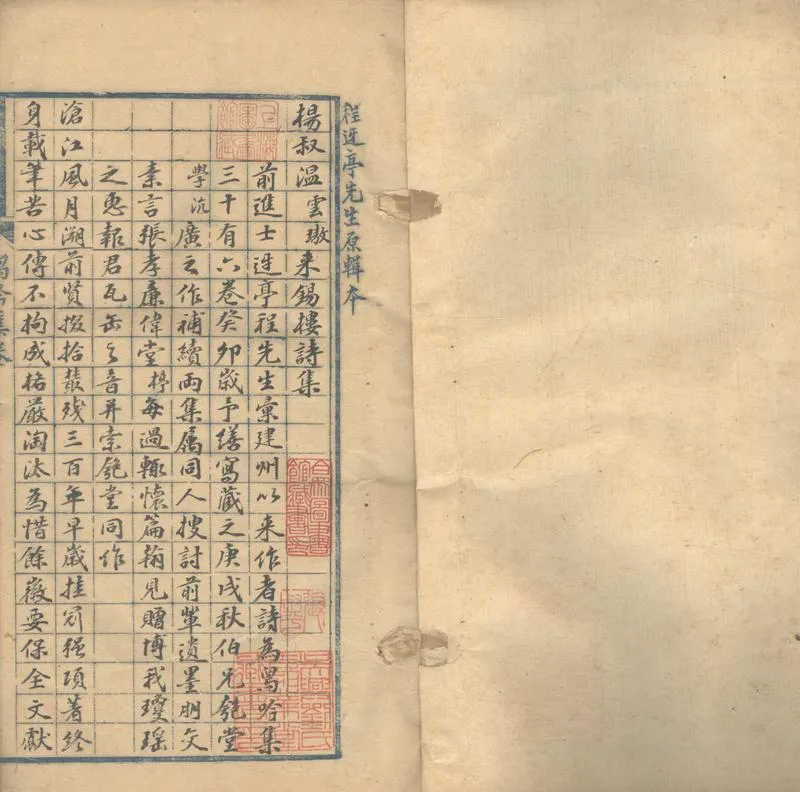 程迓亭先生原輯本
楊叔溫雲璈来錫樓詩集
前進士迓亭程先生彙建州以来作者詩為舄吟集
三十有六卷癸卯歲予繕寫藏之庚戌秋伯兄匏堂
學沆廣之作補續兩集属同人搜討前輩遺墨朋文
素言張孝廉偉堂每過輒懷篇翰見贈博我瓊瑤
之惠報君瓦缶之音并索匏堂同作
滄江風月溯前賢掇拾叢残三百年早歲挂冠强項著終
身載筆苦心傳不拘成格嚴淘汰為惜餘薇要保全文獻
上海圖書館藏
合眾圖書館藏書印